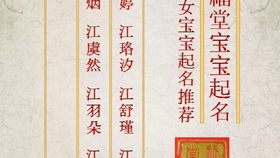 福堂宝宝起名
女宝宝起名推荐
婷 江珞汐 江舒瑾 江
烟 江虞然 江羽朵 江